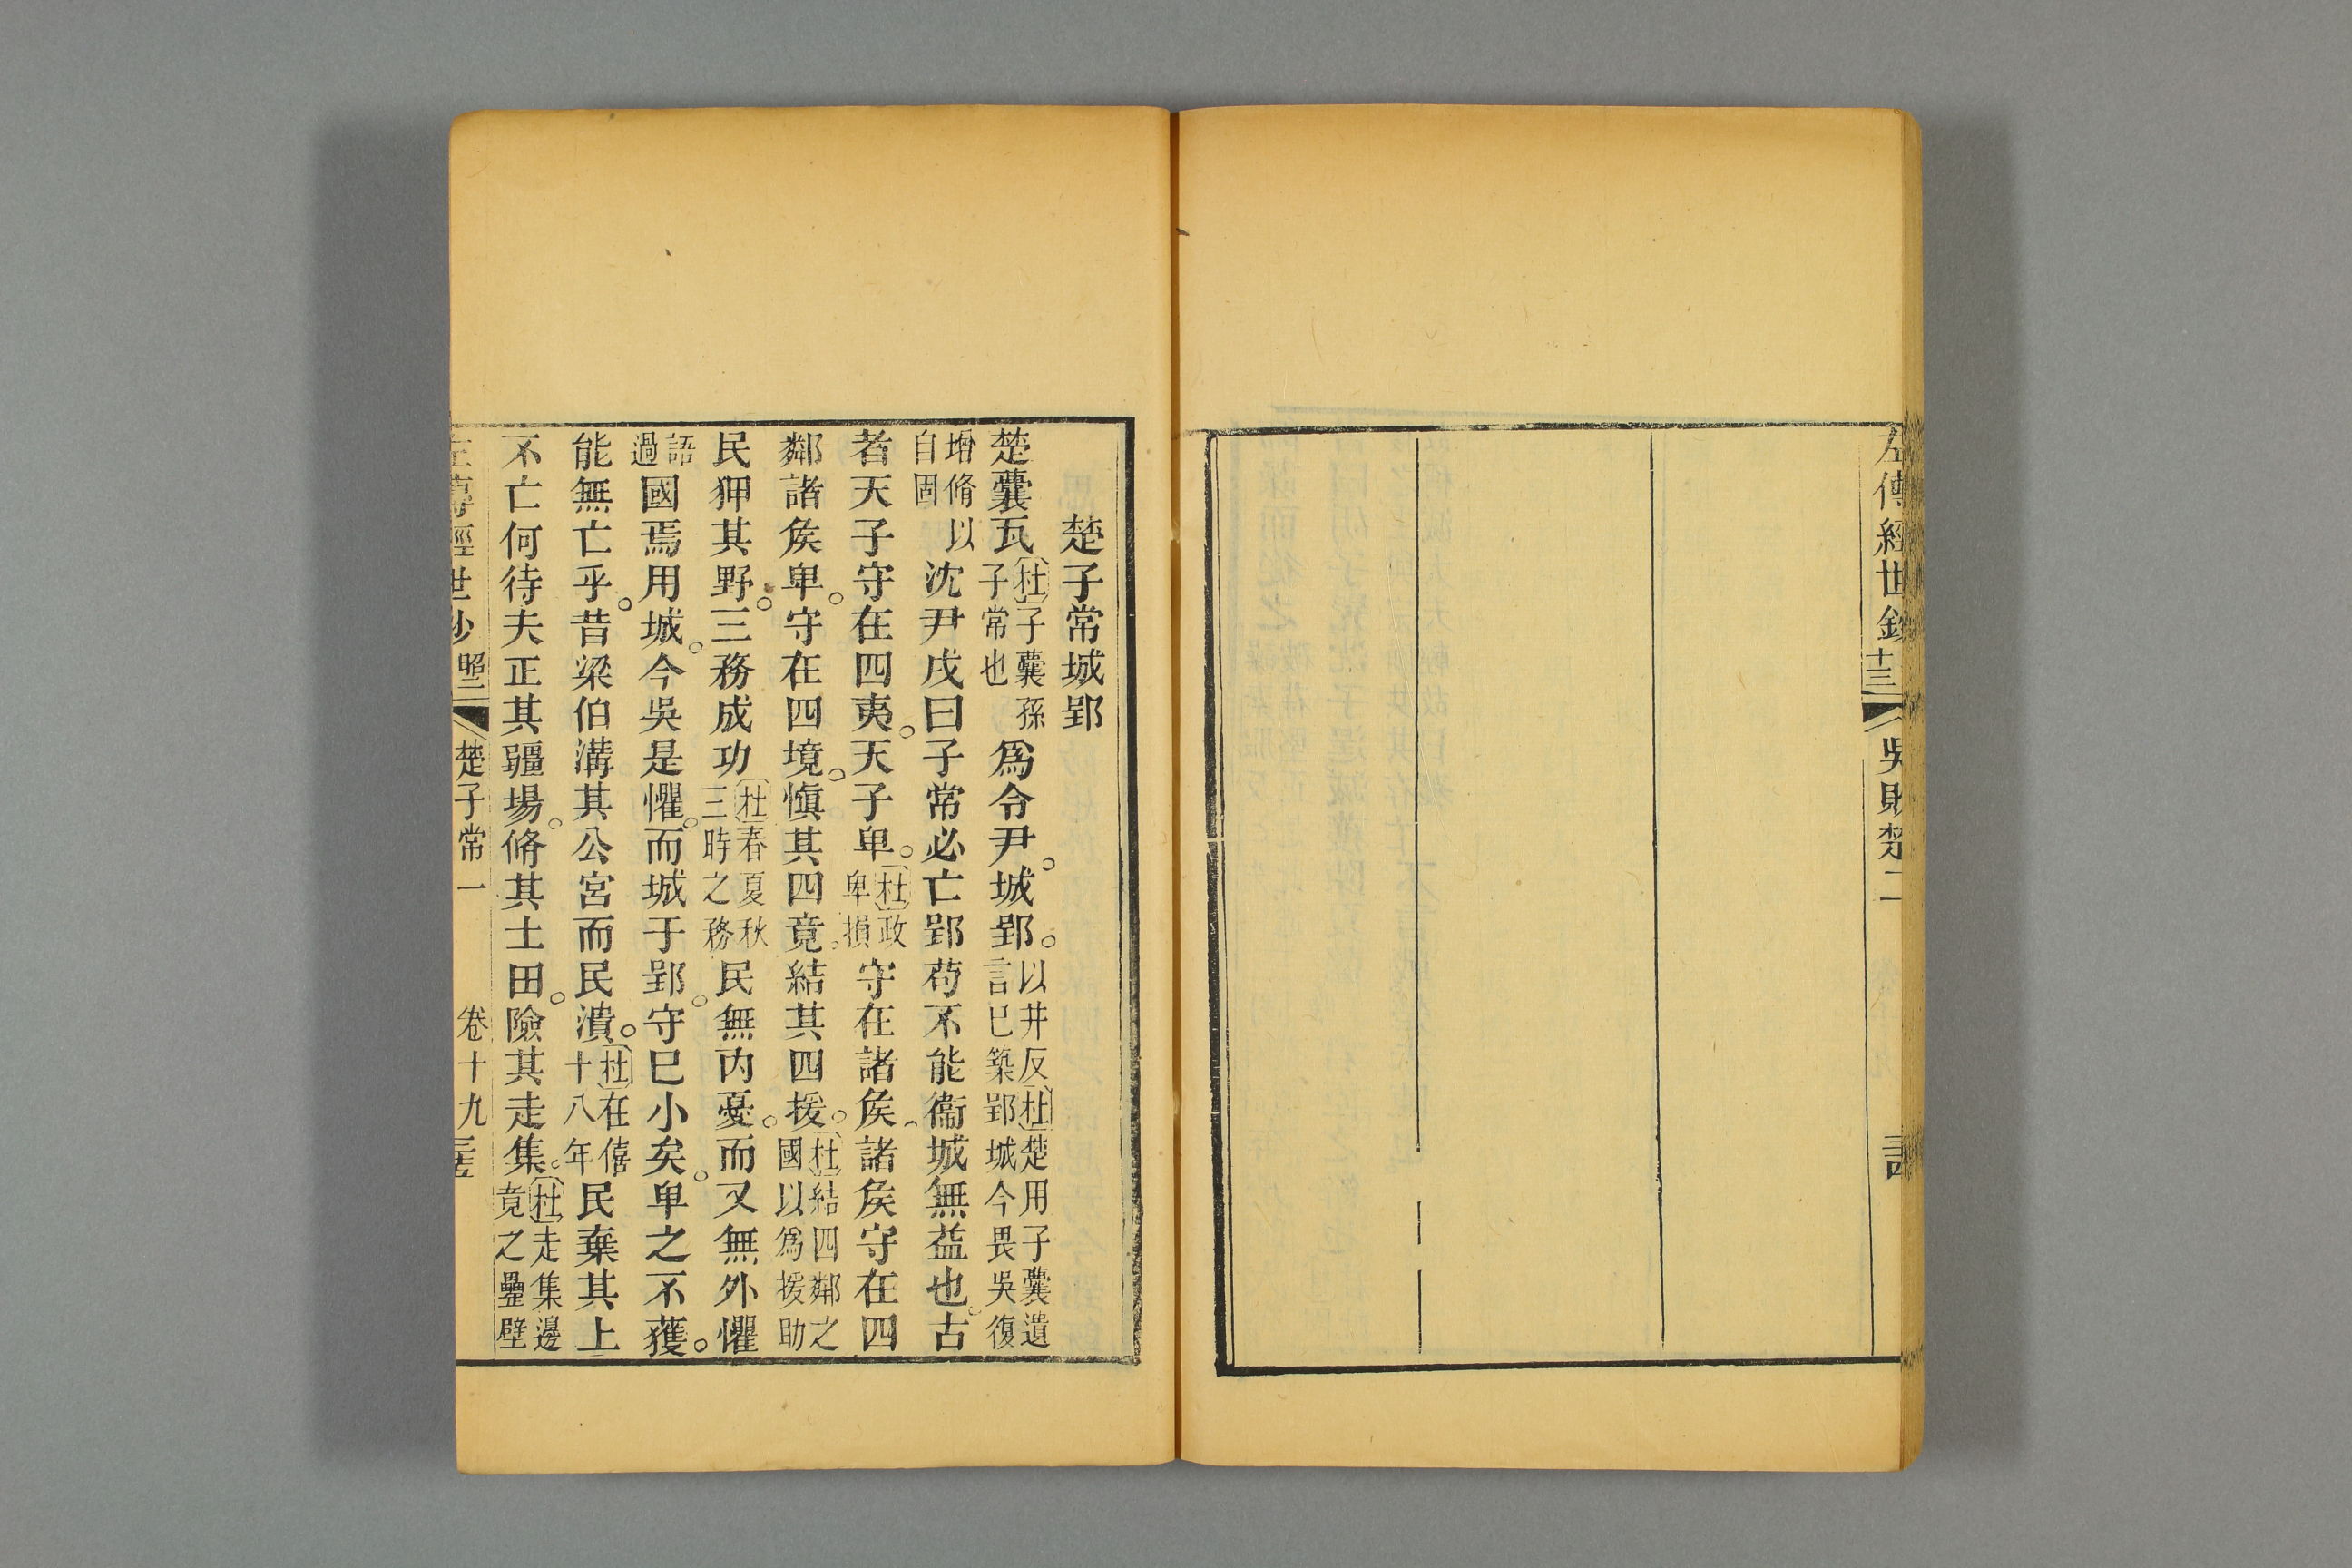 左傳經世鈔
十三
吳敗楚二
楚子常城郢
楚囊瓦杜子囊孫子常也為令尹城郢以井反杜楚用子囊遺言已築郢城今畏吳復
增脩以自固沈尹戌曰子常必亡郢苟不能衞城無益也古
者天子守在四夷天子卑杜政卑損守在諸侯諸侯守在四
鄰諸侯卑守在四境慎其四竟結其四援杜結四鄰之國以為援助
民狎其野三務成功杜春夏秋三時之務民無內憂而又無外懼
語過國焉用城今吳是懼而城于郢守已小矣卑之不獲
能無亡乎昔梁伯溝其公宮而民潰杜在僖十八年民棄其上
不亡何待夫正其疆場脩其土田險其走集杜走集邊竟之壘壁
左傳經世鈔
昭三
楚子常一
卷十九